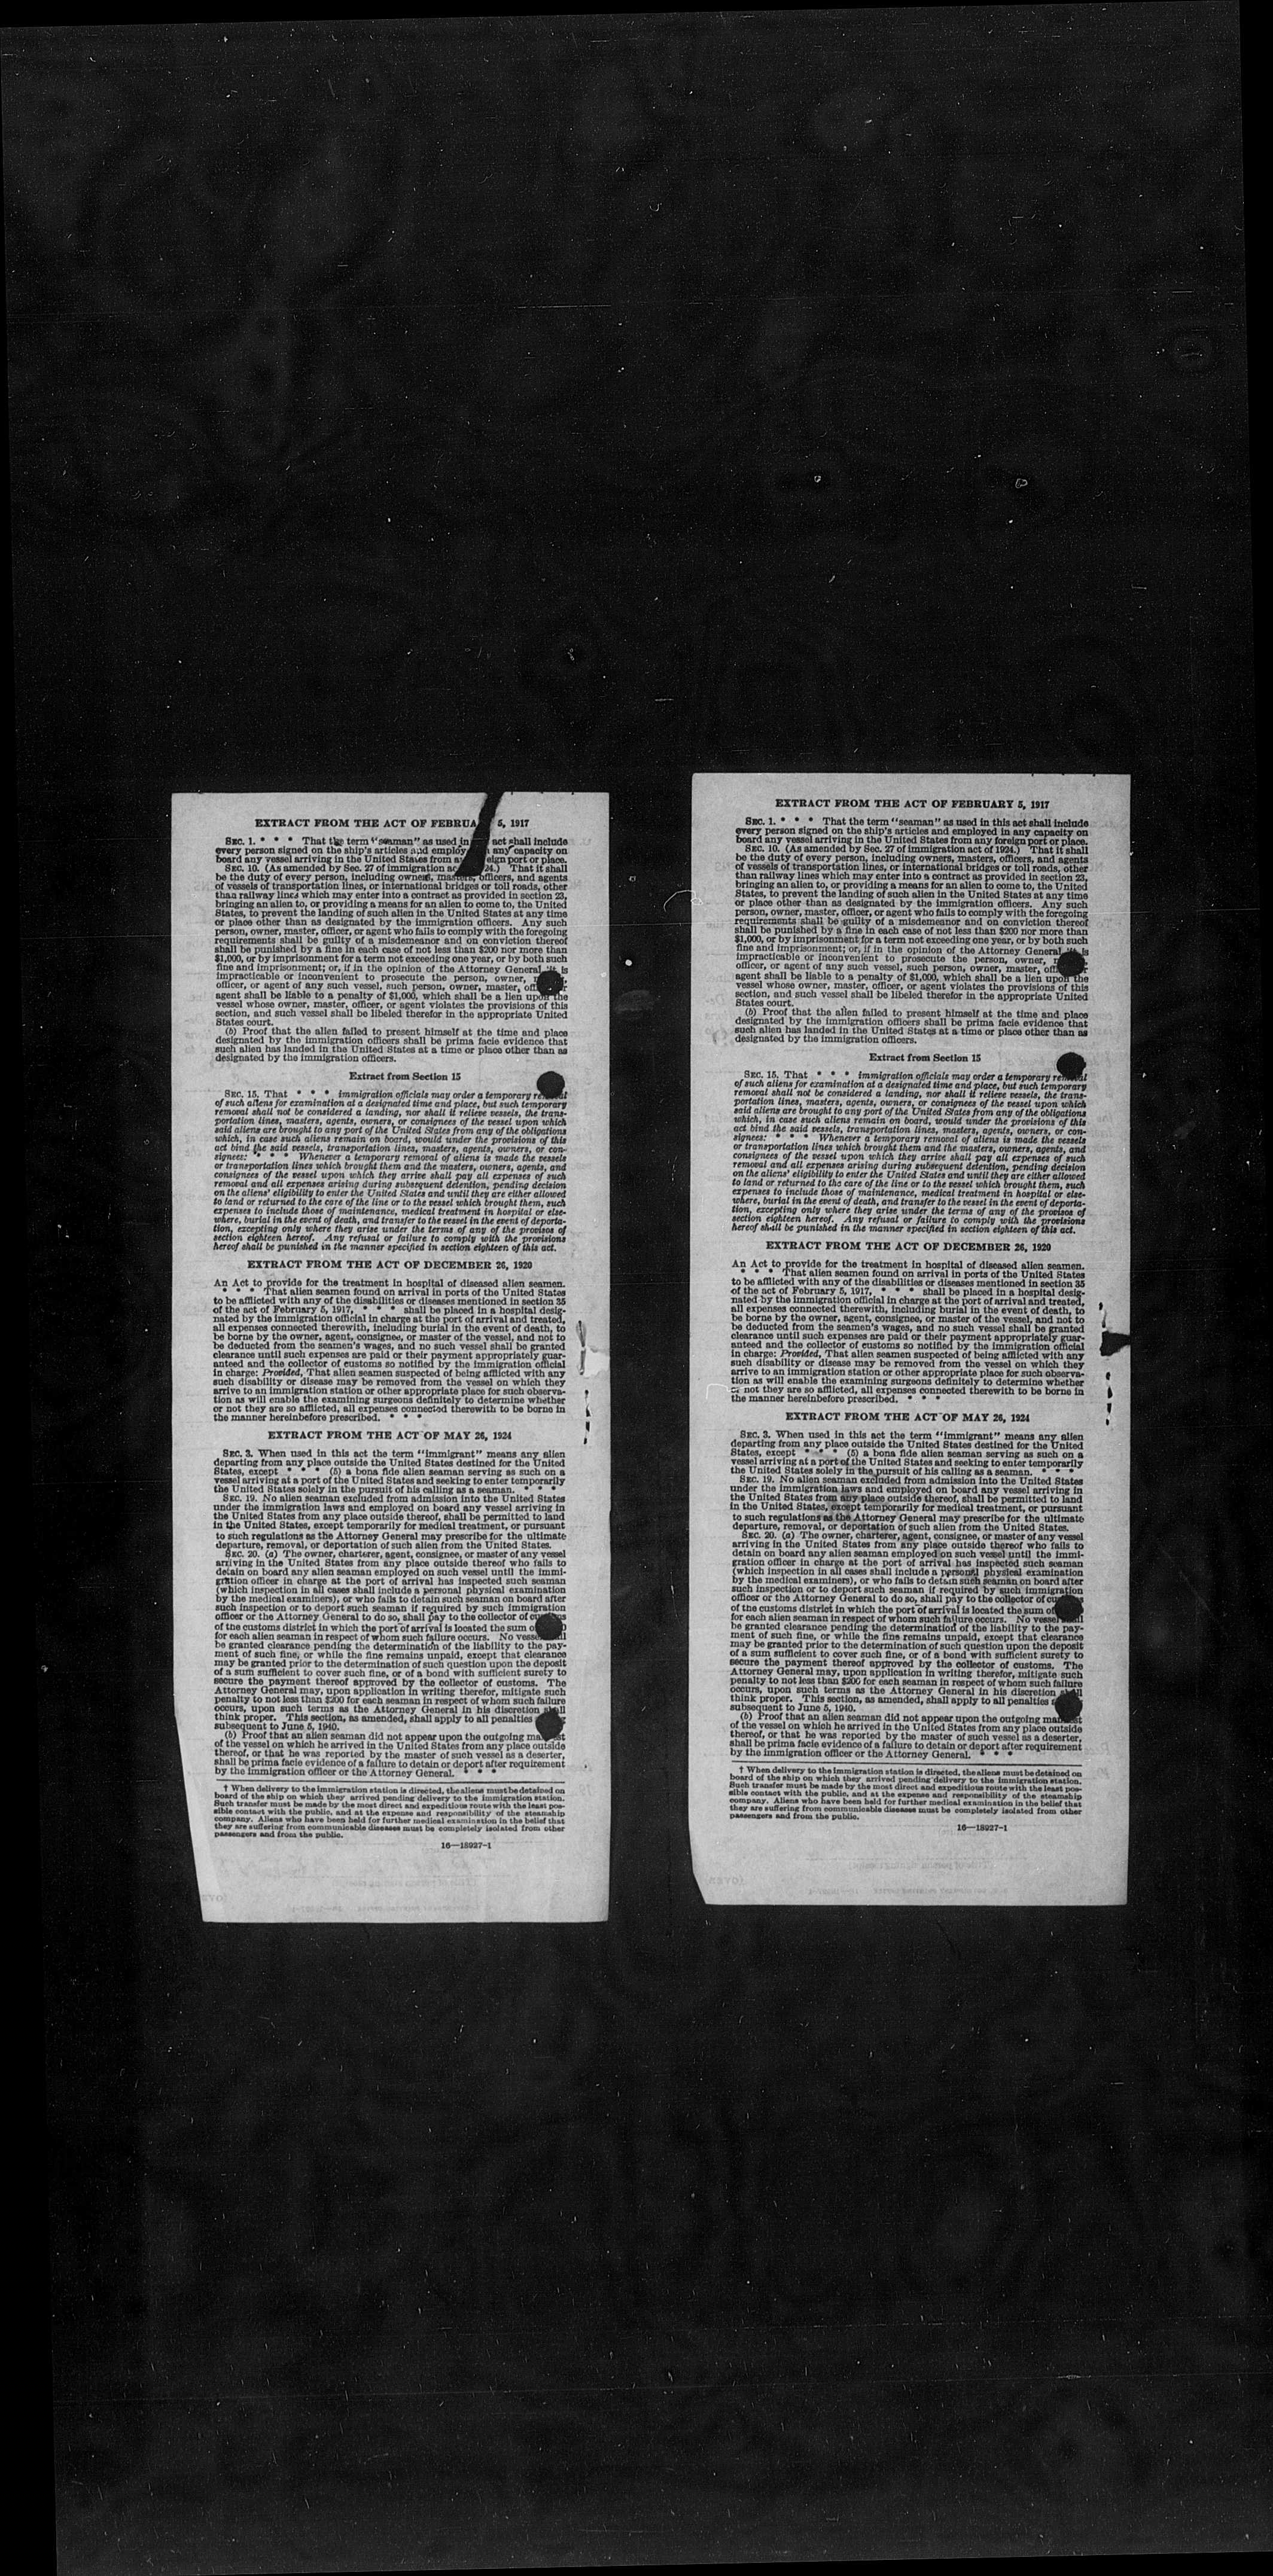 EXTRACT FROM THE ACT OF FEBRUA 5, 1917
SEC. 1. * * * That the term "seaman" as used in act shall include
every person signed on the ship's articles and employ any capacity on
board any vessel arriving in the United States from a eign port or place.
SEC. 10. (As amended by Sec. 27 of immigration ac 24.) That it shall
be the duty of every person, including owners, masters, officers, and agents
of vessels of transportation lines, or international bridges or toll roads, other
than railway lines which may enter into a contract as provided in section 23,
bringing an alien to, or providing a means for an alien to come to, the United
States, to prevent the landing of such alien in the United States at any time
or place other than as designated by the immigration officers. Any such
person, owner, master, officer, or agent who fails to comply with the foregoing
requirements shall be guilty of a misdemeanor and on conviction thereof
shall be punished by a fine in each case of not less than $200 nor more than
$1,000, or by imprisonment for a term not exceeding one year, or by both such
fine and imprisonment; or, if in the opinion of the Attorney General, it is
impracticable or inconvenient to prosecute the person, owner,
officer, or agent of any such vessel, such person, owner, master,
agent shall be liable to a penalty of $1,000, which shall be a lien upon the
vessel whose owner, master, officer, or agent violates the provisions of this
section, and such vessel shall be libeled therefor in the appropriate United
States court.
(b) Proof that the alien failed to present himself at the time and place
designated by the immigration officers shall be prima facie evidence that
such alien has landed in the United States at a time or place other than as
designated by the immigration officers.
Extract from Section 15
SEC. 15. That * * * immigration officials may order a temporary
of such aliens for examination at a designated time and place, but such temporary
removal shall not be considered a landing, nor shall it relieve vessels, the trans-
portation lines, masters, agents, owners, or consignees of the vessel upon which
said aliens are brought to any port of the United States from any of the obligations
which, in case such aliens remain on board, would under the provisions of this
act bind the said vessels, transportation lines, masters, agents, owners, or con-
signees: * * * Whenever a temporary removal of aliens is made the vessels
or transportation lines which brought them and the masters, owners, agents, and
consignees of the vessel upon which they arrive shall pay all expenses of such
removal and all expenses arising during subsequent detention, pending decision
on the aliens' eligibility to enter the United States and until they are either allowed
to land or returned to the care of the line or to the vessel which brought them, such
expenses to include those of maintenance, medical treatment in hospital or else-
where, burial in the event of death, and transfer to the vessel in the event of deporta-
tion, excepting only where they arise under the terms of any of the provisos of
section eighteen hereof. Any refusal or failure to comply with the provisions
hereof shall be punished in the manner specified in section eighteen of this act.
EXTRACT FROM THE ACT OF DECEMBER 26, 1920
An Act to provide for the treatment in hospital of diseased alien seamen.
* * * That alien seamen found on arrival in ports of the United States
to be afflicted with any of the disabilities or diseases mentioned in section 35
of the act of February 5, 1917, * * * shall be placed in a hospital desig-
nated by the immigration official in charge at the port of arrival and treated,
all expenses connected therewith, including burial in the event of death, to
be borne by the owner, agent, consignee, or master of the vessel, and not to
be deducted from the seamen's wages, and no such vessel shall be granted
clearance until such expenses are paid or their payment appropriately guar-
anteed and the collector of customs so notified by the immigration official
in charge: Provided, That alien seamen suspected of being afflicted with any
such disability or disease may be removed from the vessel on which they
arrive to an immigration station or other appropriate place for such observa-
tion as will enable the examining surgeons definitely to determine whether
or not they are so afflicted, all expenses connected therewith to be borne in
the manner hereinbefore prescribed. * * *
EXTRACT FROM THE ACT OF MAY 26, 1924
SEC. 3. When used in this act the term "immigrant" means any alien
departing from any place outside the United States destined for the United
States, except * * * (5) a bona fide alien seaman serving as such on a
vessel arriving at a port of the United States and seeking to enter temporarily
the United States solely in the pursuit of his calling as a seaman. * * *
SEC. 19. No alien seaman excluded from admission into the United States
under the immigration laws and employed on board any vessel arriving in
the United States from any place outside thereof, shall be permitted to land
in the United States, except temporarily for medical treatment, or pursuant
to such regulations as the Attorney General may prescribe for the ultimate
departure, removal, or deportation of such alien from the United States.
SEC. 20. (a) The owner, charterer, agent, consignee, or master of any vessel
arriving in the United States from any place outside thereof who fails to
detain on board any alien seaman employed on such vessel until the immi-
gration officer in charge at the port of arrival has inspected such seaman
(which inspection in all cases shall include a personal physical examination
by the medical examiners), or who fails to detain such seaman on board after
such inspection or to deport such seaman if required by such immigration
officer or the Attorney General to do so, shall pay to the collector of
of the customs district in which the port of arrival is located the sum of
for each alien seaman in respect of whom such failure occurs. No vessel
be granted clearance pending the determination of the liability to the pay-
ment of such fine, or while the fine remains unpaid, except that clearance
may be granted prior to the determination of such question upon the deposit
of a sum sufficient to cover such fine, or of a bond with sufficient surety to
secure the payment thereof approved by the collector of customs. The
Attorney General may, upon application in writing therefor, mitigate such
penalty to not less than $200 for each seaman in respect of whom such failure
occurs, upon such terms as the Attorney General in his discretion shall
think proper. This section, as amended, shall apply to all penalties
subsequent to June 5, 1940.
(b) Proof that an alien seaman did not appear upon the outgoing
of the vessel on which he arrived in the United States from any place outside
thereof, or that he was reported by the master of such vessel as a deserter,
shall be prima facie evidence of a failure to detain or deport after requirement
by the immigration officer or the Attorney General. * * *
† When delivery to the immigration station is directed, the aliens must be detained on
board of the ship on which they arrived pending delivery to the immigration station.
Such transfer must be made by the most direct and expeditious route with the least pos-
sible contact with the public, and at the expense and responsibility of the steamship
company. Aliens who have been held for further medical examination in the belief that
they are suffering from communicable diseases must be completely isolated from other
passengers and from the public.
16—18927-1
EXTRACT FROM THE ACT OF FEBRUARY 5, 1917
SEC. 1. * * * That the term "seaman" as used in this act shall include
every person signed on the ship's articles and employed in any capacity on
board any vessel arriving in the United States from any foreign port or place.
SEC. 10. (As amended by Sec. 27 of immigration act of 1924.) That it shall
be the duty of every person, including owners, masters, officers, and agents
of vessels of transportation lines, or international bridges or toll roads, other
than railway lines which may enter into a contract as provided in section 23,
bringing an alien to, or providing a means for an alien to come to, the United
States, to prevent the landing of such alien in the United States at any time
or place other than as designated by the immigration officers. Any such
person, owner, master, officer, or agent who fails to comply with the foregoing
requirements shall be guilty of a misdemeanor and on conviction thereof
shall be punished by a fine in each case of not less than $200 nor more than
$1,000, or by imprisonment for a term not exceeding one year, or by both such
fine and imprisonment; or, if in the opinion of the Attorney General, it is
impracticable or inconvenient to prosecute the person, owner,
officer, or agent of any such vessel, such person, owner, master,
agent shall be liable to a penalty of $1,000, which shall be a lien upon the
vessel whose owner, master, officer, or agent violates the provisions of this
section, and such vessel shall be libeled therefor in the appropriate United
States court.
(b) Proof that the alien failed to present himself at the time and place
designated by the immigration officers shall be prima facie evidence that
such alien has landed in the United States at a time or place other than as
designated by the immigration officers.
Extract from Section 15
SEC. 15. That * * * immigration officials may order a temporary
of such aliens for examination at a designated time and place, but such temporary
removal shall not be considered a landing, nor shall it relieve vessels, the trans-
portation lines, masters, agents, owners, or consignees of the vessel upon which
said aliens are brought to any port of the United States from any of the obligations
which, in case such aliens remain on board, would under the provisions of this
act bind the said vessels, transportation lines, masters, agents, owners, or con-
signees: * * * Whenever a temporary removal of aliens is made the vessels
or transportation lines which brought them and the masters, owners, agents, and
consignees of the vessel upon which they arrive shall pay all expenses of such
removal and all expenses arising during subsequent detention, pending decision
on the aliens' eligibility to enter the United States and until they are either allowed
to land or returned to the care of the line or to the vessel which brought them, such
expenses to include those of maintenance, medical treatment in hospital or else-
where, burial in the event of death, and transfer to the vessel in the event of deporta-
tion, excepting only where they arise under the terms of any of the provisos of
section eighteen hereof. Any refusal or failure to comply with the provisions
hereof shall be punished in the manner specified in section eighteen of this act.
EXTRACT FROM THE ACT OF DECEMBER 26, 1920
An Act to provide for the treatment in hospital of diseased alien seamen.
* * * That alien seamen found on arrival in ports of the United States
to be afflicted with any of the disabilities or diseases mentioned in section 35
of the act of February 5, 1917, * * * shall be placed in a hospital desig-
nated by the immigration official in charge at the port of arrival and treated,
all expenses connected therewith, including burial in the event of death, to
be borne by the owner, agent, consignee, or master of the vessel, and not to
be deducted from the seamen's wages, and no such vessel shall be granted
clearance until such expenses are paid or their payment appropriately guar-
anteed and the collector of customs so notified by the immigration official
in charge: Provided, That alien seamen suspected of being afflicted with any
such disability or disease may be removed from the vessel on which they
arrive to an immigration station or other appropriate place for such observa-
tion as will enable the examining surgeons definitely to determine whether
or not they are so afflicted, all expenses connected therewith to be borne in
the manner hereinbefore prescribed. * * *
EXTRACT FROM THE ACT OF MAY 26, 1924
SEC. 3. When used in this act the term "immigrant" means any alien
departing from any place outside the United States destined for the United
States, except * * * (5) a bona fide alien seaman serving as such on a
vessel arriving at a port of the United States and seeking to enter temporarily
the United States solely in the pursuit of his calling as a seaman. * * *
SEC. 19. No alien seaman excluded from admission into the United States
under the immigration laws and employed on board any vessel arriving in
the United States from any place outside thereof, shall be permitted to land
in the United States, except temporarily for medical treatment, or pursuant
to such regulations as the Attorney General may prescribe for the ultimate
departure, removal, or deportation of such alien from the United States.
SEC. 20. (a) The owner, charterer, agent, consignee, or master of any vessel
arriving in the United States from any place outside thereof who fails to
detain on board any alien seaman employed on such vessel until the immi-
gration officer in charge at the port of arrival has inspected such seaman
(which inspection in all cases shall include a personal physical examination
by the medical examiners), or who fails to detain such seaman on board after
such inspection or to deport such seaman if required by such immigration
officer or the Attorney General to do so, shall pay to the collector of
of the customs district in which the port of arrival is located the sum of
for each alien seaman in respect of whom such failure occurs. No vessel
be granted clearance pending the determination of the liability to the pay-
ment of such fine, or while the fine remains unpaid, except that clearance
may be granted prior to the determination of such question upon the deposit
of a sum sufficient to cover such fine, or of a bond with sufficient surety to
secure the payment thereof approved by the collector of customs. The
Attorney General may, upon application in writing therefor, mitigate such
penalty to not less than $200 for each seaman in respect of whom such failure
occurs, upon such terms as the Attorney General in his discretion shall
think proper. This section, as amended, shall apply to all penalties
subsequent to June 5, 1940.
(b) Proof that an alien seaman did not appear upon the outgoing
of the vessel on which he arrived in the United States from any place outside
thereof, or that he was reported by the master of such vessel as a deserter,
shall be prima facie evidence of a failure to detain or deport after requirement
by the immigration officer or the Attorney General. * * *
† When delivery to the immigration station is directed, the aliens must be detained on
board of the ship on which they arrived pending delivery to the immigration station.
Such transfer must be made by the most direct and expeditious route with the least pos-
sible contact with the public, and at the expense and responsibility of the steamship
company. Aliens who have been held for further medical examination in the belief that
they are suffering from communicable diseases must be completely isolated from other
passengers and from the public.
16—18927-1